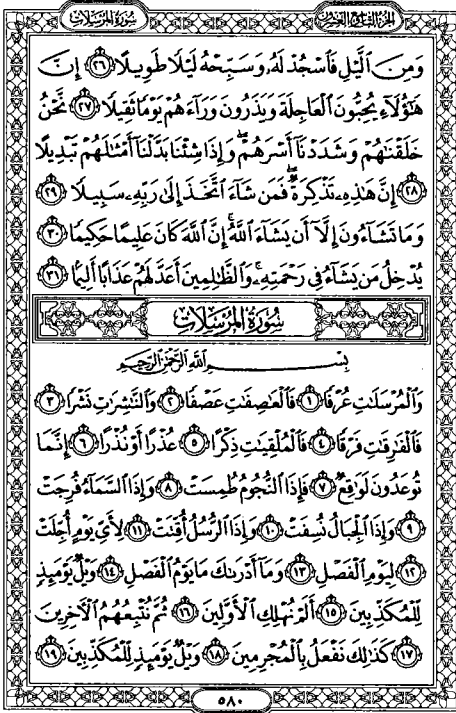 سورة المرسلات
الجزء التاسع والعشرون
وَمِنَ ٱلَّيۡلِ فَٱسۡجُدۡ لَهُۥ وَسَبِّحۡهُ لَيۡلٗا طَوِيلًا ٢٦ إِنَّ
هَٰٓؤُلَآءِ يُحِبُّونَ ٱلۡعَاجِلَةَ وَيَذَرُونَ وَرَآءَهُمۡ يَوۡمٗا ثَقِيلٗا ٢٧ نَّحۡنُ
خَلَقۡنَٰهُمۡ وَشَدَدۡنَآ أَسۡرَهُمۡۖ وَإِذَا شِئۡنَا بَدَّلۡنَآ أَمۡثَٰلَهُمۡ تَبۡدِيلًا
٢٨ إِنَّ هَٰذِهِۦ تَذۡكِرَةٞۖ فَمَن شَآءَ ٱتَّخَذَ إِلَىٰ رَبِّهِۦ سَبِيلٗا ٢٩
وَمَا تَشَآءُونَ إِلَّآ أَن يَشَآءَ ٱللَّهُۚ إِنَّ ٱللَّهَ كَانَ عَلِيمًا حَكِيمٗا ٣٠
يُدۡخِلُ مَن يَشَآءُ فِي رَحۡمَتِهِۦۚ وَٱلظَّٰلِمِينَ أَعَدَّ لَهُمۡ عَذَابًا أَلِيمَۢا ٣١
سُورَةُ المُرۡسَلَات
بِسۡمِ ٱللَّهِ ٱلرَّحۡمَٰنِ ٱلرَّحِيمِ
وَٱلۡمُرۡسَلَٰتِ عُرۡفٗا ١ فَٱلۡعَٰصِفَٰتِ عَصۡفٗا ٢ وَٱلنَّٰشِرَٰتِ نَشۡرٗا ٣
فَٱلۡفَٰرِقَٰتِ فَرۡقٗا ٤ فَٱلۡمُلۡقِيَٰتِ ذِكۡرًا ٥ عُذۡرًا أَوۡ نُذۡرًا ٦ إِنَّمَا
تُوعَدُونَ لَوَٰقِعٞ ٧ فَإِذَا ٱلنُّجُومُ طُمِسَتۡ ٨ وَإِذَا ٱلسَّمَآءُ فُرِجَتۡ
٩ وَإِذَا ٱلۡجِبَالُ نُسِفَتۡ ١٠ وَإِذَا ٱلرُّسُلُ أُقِّتَتۡ ١١ لِأَيِّ يَوۡمٍ أُجِّلَتۡ
١٢ لِيَوۡمِ ٱلۡفَصۡلِ ١٣ وَمَآ أَدۡرَىٰكَ مَا يَوۡمُ ٱلۡفَصۡلِ ١٤ وَيۡلٞ يَوۡمَئِذٖ
لِّلۡمُكَذِّبِينَ ١٥ أَلَمۡ نُهۡلِكِ ٱلۡأَوَّلِينَ ١٦ ثُمَّ نُتۡبِعُهُمُ ٱلۡأٓخِرِينَ
١٧ كَذَٰلِكَ نَفۡعَلُ بِٱلۡمُجۡرِمِينَ ١٨ وَيۡلٞ يَوۡمَئِذٖ لِّلۡمُكَذِّبِينَ ١٩
٥٨٠